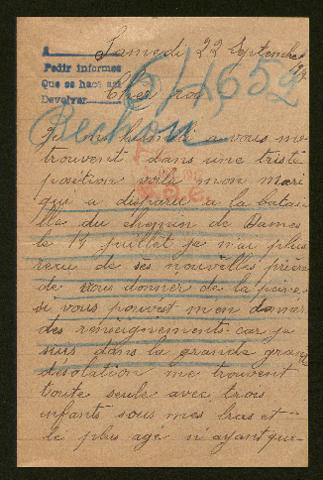 Samedi 22 Septembre
A
Pedir informes
Que se haga así
Devolver
61,652
Cher roi
Bechou
a vous me
trouvent dans une triste
position voila mon mari
que a disparu a la batai
lle du chemin de Dames
le 19 juillet je n'ai plus
recu de ses nouvelles prière
de vous donner de la peine
si vous pouvest m'en donner
des renseignements car je
suis dans la grande grande
désolation me trouvent
toute seule avec trois
infants sous mes bras et
le plus agé n'ayant que